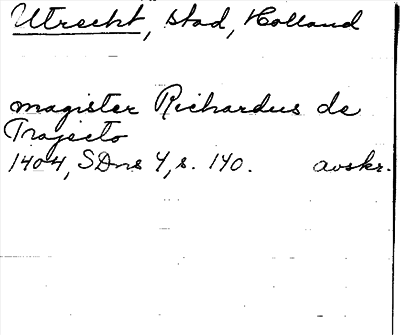 Utrecht, stad, Holland
magister Richardus de
Trajecto
1404, SDns 4, s. 140. avskr.